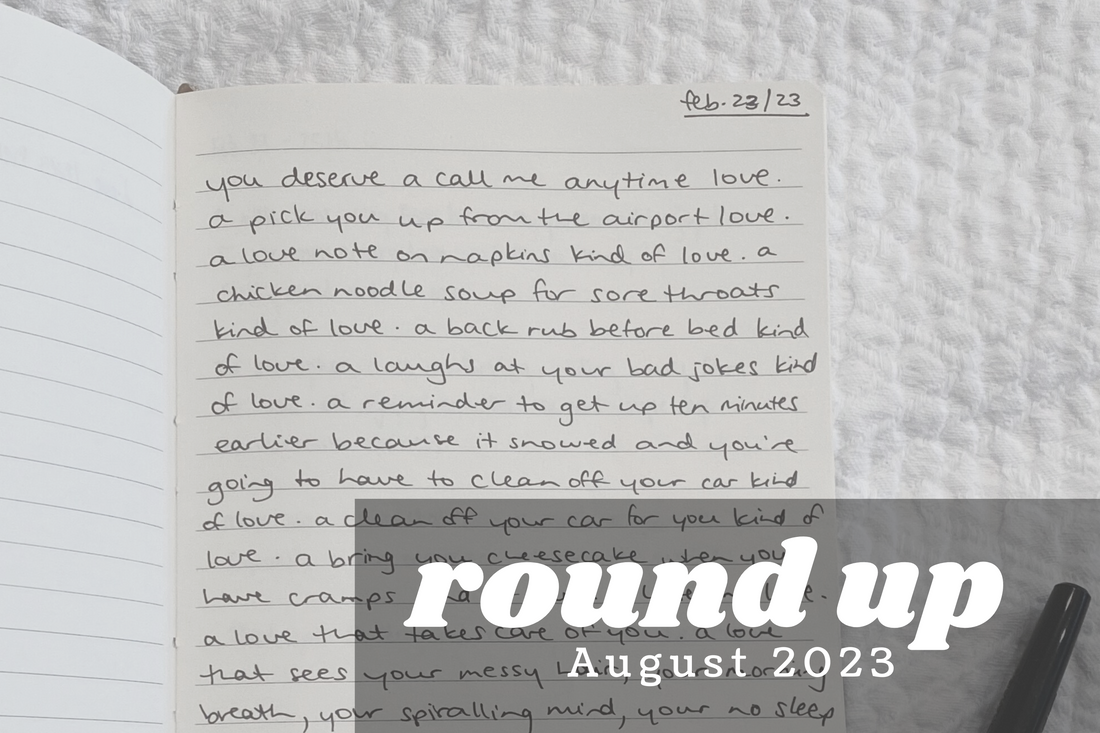 feb. 23/23
you deserve a call me anytime love.
a pick you up from the airport love.
a love note on napkins kind of love. a
chicken noodle soup for sore throats
kind of love. a back rub before bed kind
of love. a laughs at your bad jokes kind
of love. a reminder to get up ten minutes
earlier because it snowed and you're
going to have to clean off your car kind
of love. a clean off your car for you kind of
love. a bring you cheesecake when you
have cramps
a love that takes care of you. a love
that sees your messy hair, your morning
breath, your spiralling mind, your no sleep
round up
August 2023